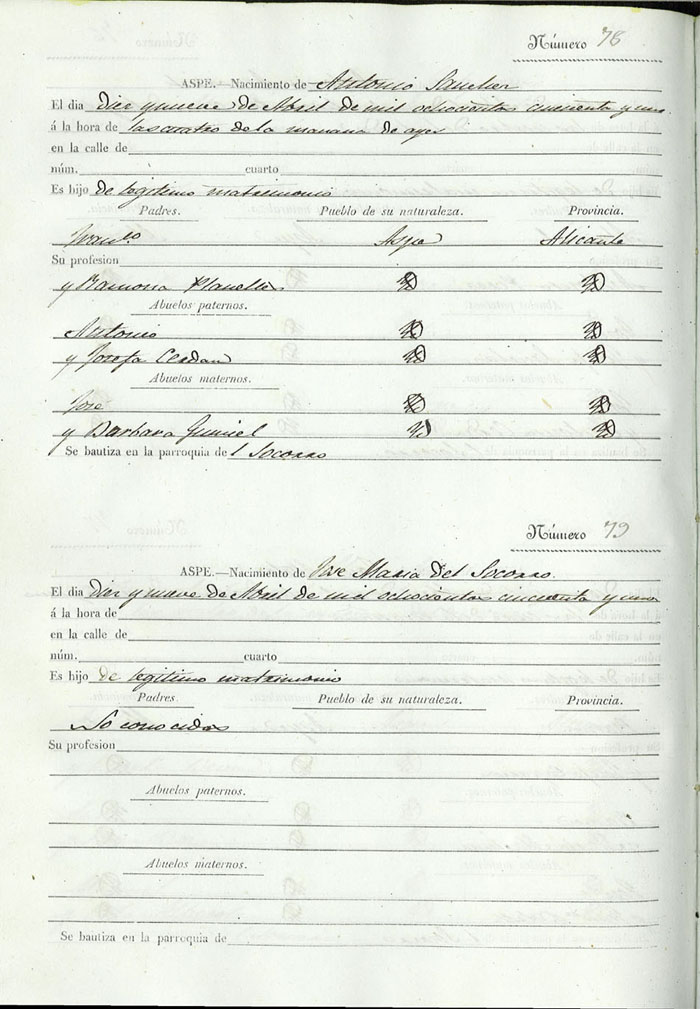 Número 78
ASPE.—Nacimiento de Antonio Sanchez
El dia Diez y nueve de Abril de mil ochocientos cincuenta y uno
á la hora de las cuatro de la mañana de ayer
en la calle de
núm. cuarto
Es hijo de legitimo matrimonio
Padres. Pueblo de su naturaleza. Provincia.
Franco. Aspe Alicante
Su profesion
y Ramona Planelles
Abuelos paternos.
Antonio
y Josefa Cerdan
Abuelos maternos.
Jose
y Barbara Gumiel
Se bautiza en la parroquia del Socorro
Número 79
ASPE.—Nacimiento de Jose Maria Del Socorro.
El dia Diez y nueve de Abril de mil ochocientos cincuenta y uno
á la hora de
en la calle de
núm. cuarto
Es hijo de legitimo matrimonio
Padres. Pueblo de su naturaleza. Provincia.
No conocidos
Su profesion
Abuelos paternos.
Abuelos maternos.
Se bautiza en la parroquia de